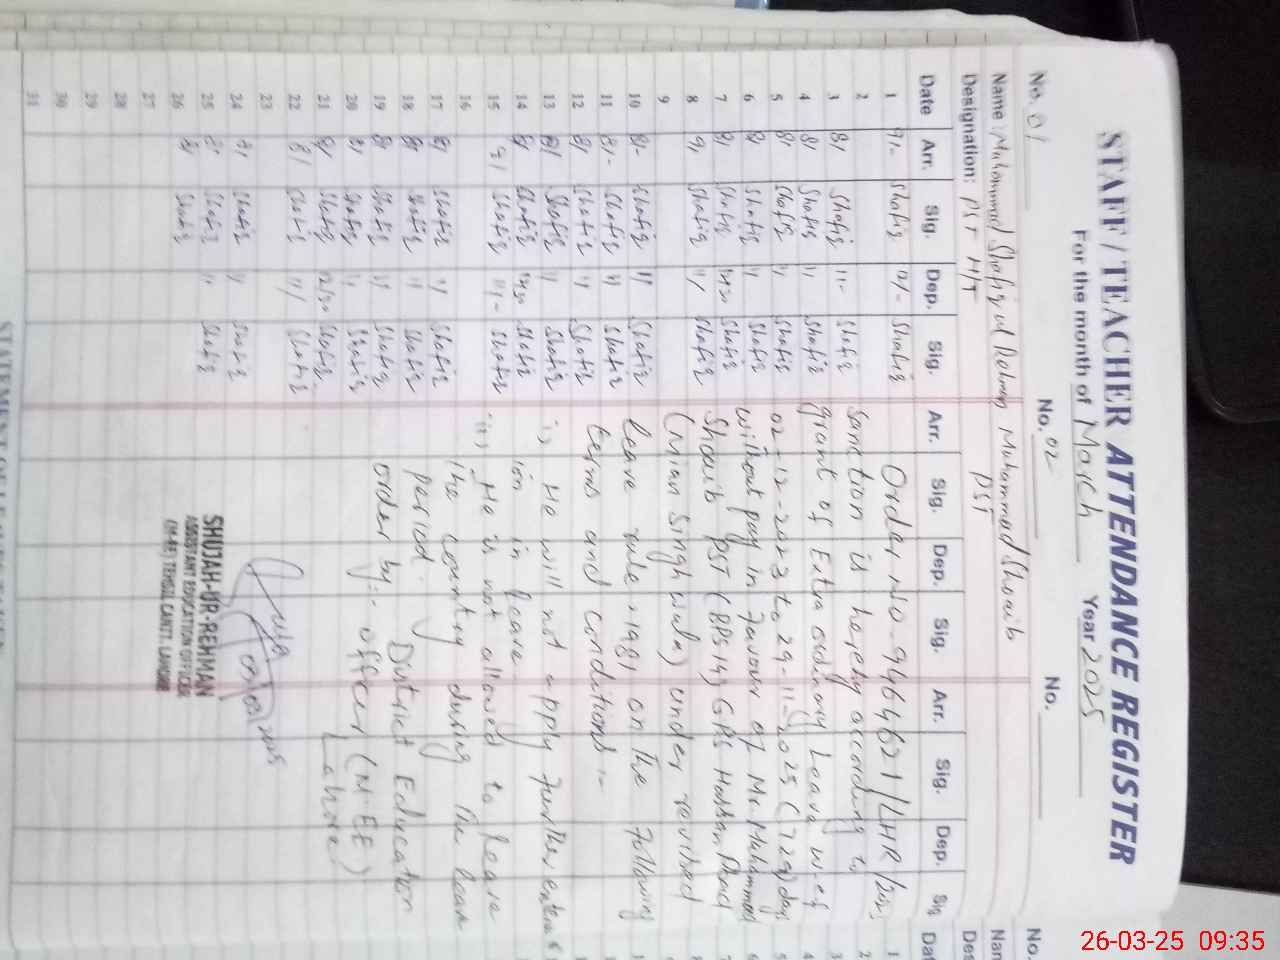 STAFF / TEACHER ATTENDANCE REGISTER
For the month of March Year 2025
No. 01 No. 02 No. No.
Name: Muhammad Shafiq ul Rehman Muhammad Shoaib
Designation: PST H/T PST
Date Arr. Sig. Dep. Sig. Arr. Sig. Dep. Sig. Arr. Sig. Dep. Sig
1 9/- Shafiq 12/- Shafiq
2
3 8/ Shafiq 11- Shafiq
4 8/ Shafiq 11 Shafiq
5 8/ Shafiq 11 Shafiq
6 8/ Shafiq 11 Shafiq
7 8/ Shafiq Shafiq
8 9/ Shafiq 11/ Shafiq
9
10 8/- Shafiq 11 Shafiq
11 8/- Shafiq 11 Shafiq
12 8/ Shafiq 11 Shafiq
13 8/ Shafiq 11 Shafiq
14 8/ Shafiq Shafiq
15 9/ Shafiq 11/- Shafiq
16
17 8/ Shafiq 11 Shafiq
18 8/ Shafiq 11 Shafiq
19 8/ Shafiq 11 Shafiq
20 8/ Shafiq 11 Shafiq
21 8/ Shafiq 12/30 Shafiq
22 8/ Shafiq 11/ Shafiq
23
24 8/ Shafiq 11 Shafiq
25 8/ Shafiq 11 Shafiq
26 8/ Shafiq
27
28
29
30
31
Order No. 9464621/LHR/2023
Sanction is hereby according to
grant of Extra ordinary Leave w.e.f
02-12-2023 to 29-11-2025 (729) days
without pay in favour of Mr Muhammad
Shoaib PST (BPS 14) GPS Hassan Abad
(Mian Singh wala) under revised
leave rule 1981 on the following
terms and conditions :-
i) He will not apply further
ion in leave
ii) He is not allowed to leave
the country during the leave
period.
District Education
order by:- officer (M-EE)
Lahore
03/03/2025
SHUJAH-UR-REHMAN
ASSISTANT EDUCATION OFFICER
(M-EE) TEHSIL CANTT. LAHORE
26-03-25 09:35